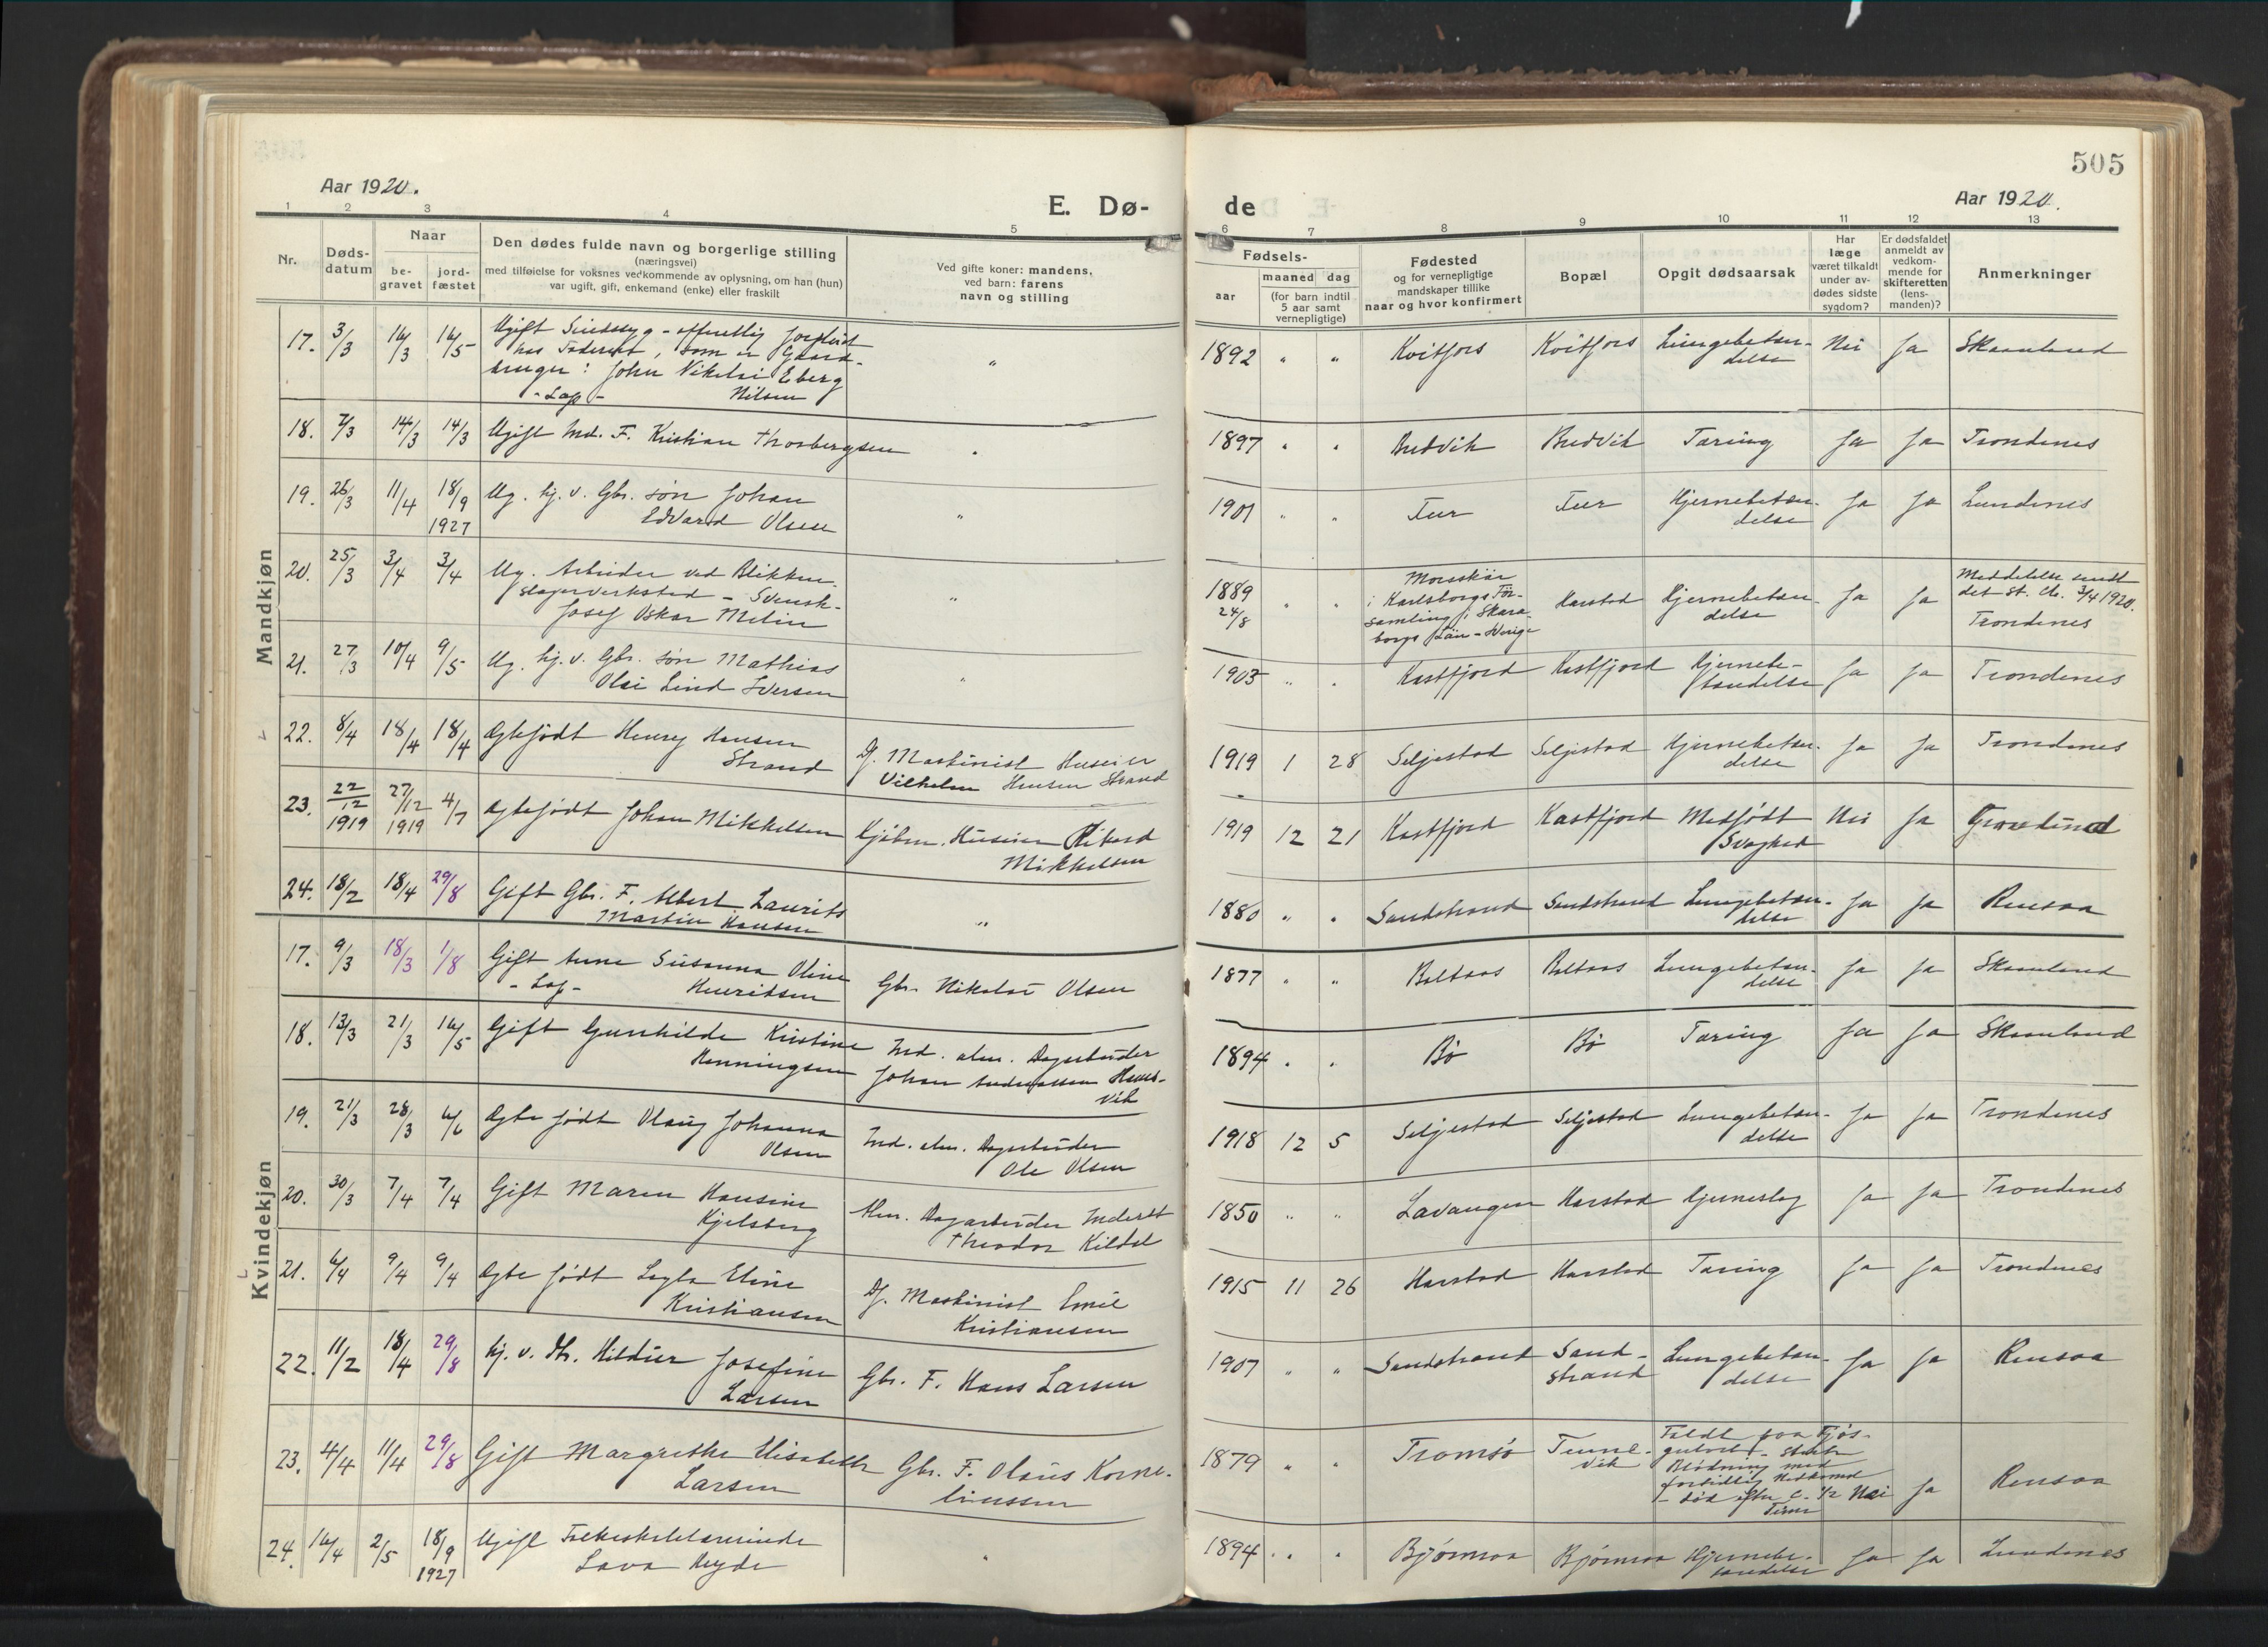 505
Aar 1920. E. Dø- de Aar 1920.
1 2 3 4 5 6 7 8 9 10 11 12 13
Nr.
Døds-
datum
Naar
be-
gravet
jord-
fæstet
Den dødes fulde navn og borgerlige stilling
(næringsvei)
med tilføielse for voksnes vedkommende av oplysning, om han (hun)
var ugift, gift, enkemand (enke) eller fraskilt
Ved gifte koner: mandens,
ved barn: farens
navn og stilling
Fødsels-
aar
maaned dag
(for barn indtil
5 aar samt
vernepligtige)
Fødested
og for vernepligtige
mandskaper tillike
naar og hvor konfirmert
Bopæl
Opgit dødsaarsak
Har
læge
været tilkaldt
under av-
dødes sidste
sygdom?
Er dødsfaldet
anmeldt av
vedkom-
mende for
skifteretten
(lens-
manden)?
Anmerkninger
Mandkjøn
17. 3/3 16/3 16/5 Ugift Sindssyg - offentlig forpleiet
hos Faderen, som er Gaard-
bruger: John Nikolai Eberg
- Lap - Nilsen
" 1892 " " Kvitfors Kvitfors Lungebetæn-
delse Nei Ja Skaanland
18. 7/3 14/3 14/3 Ugift Ind. F. Kristian Thorbergsen
" 1897 " " Bredvik Bredvik Tæring Ja Ja Trondenes
19. 26/3 11/4 18/9
1927
Ug. hj. v. Gbr. søn Johan
Edvard Olsen
" 1901 " " Fur Fur Hjernebetæn-
delse Ja Ja Lundenes
20. 25/3 3/4 3/4 Ug. Arbeider ved Blikken-
slagerverksted - Svensk -
Josef Oskar Melin
" 1889
24/8
" " Morsskär
i Karlsborgs För-
samling i Skara-
borgs Län - Sverige
Harstad Hjernebetæn-
delse Ja Ja Meddelelse sendt
det st. Cb. 3/4 1920.
Trondenes
21. 27/3 10/4 9/5 Ug. hj. v. Gbr. søn Mathias
Olai Lind Iversen
" 1903 " " Kastfjord Kastfjord Hjernebe-
tændelse Ja Ja Trondenes
22. 8/4 18/4 18/4 Ægtefødt Henry Hansen
Strand
Df. Maskinist Huseier
Vilhelm Hansen Strand
1919 1 28 Seljestad Seljestad Hjernebetæn-
delse Ja Ja Trondenes
23. 22/12
1919
27/12
1919
4/7 Ægtefødt Johan Mikkelsen
Kjøbm. Huseier Rikard
Mikkelsen
1919 12 21 Kastfjord Kastfjord Medfødt
Svaghed Nei Ja
24. 18/2 18/4 29/8 Gift Gbr. F. Albert Laurits
Martin Hansen
" 1880 " " Sandstrand Sandstrand Lungebetæn-
delse Ja Ja Rensaa
Kvindekjøn
17. 9/3 18/3 1/8 Gift Anne Susanna Oline
- Lap - Henriksen
Gbr. Nikolai Olsen
1877 " " Boltaas Boltaas Lungebetæn-
delse Ja Ja Skaanland
18. 13/3 21/3 16/5 Gift Gunhilde Kristine
Henningsen
Ind. alm. Dagarbeider
Johan Andreassen Hauk-
vik
1894 " " Bø Bø Tæring Ja Ja Skaanland
19. 21/3 28/3 6/6 Ægte født Olaug Johanna
Olsen
Ind. alm. Dagarbeider
Ole Olsen
1918 12 5 Seljestad Seljestad Lungebetæn-
delse Ja Ja Trondenes
20. 30/3 7/4 7/4 Gift Maren Hansine
Kjelsberg
Alm. Dagarbeider Inderst
Theodor Kildal
1850 " " Lavangen Harstad Hjerneslag Ja Ja Trondenes
21. 6/4 9/4 9/4 Ægte født Eline
Kristiansen
Df. Maskinist Emil
Kristiansen
1915 11 26 Harstad Harstad Tæring Ja Ja Trondenes
22. 11/2 18/4 29/8 hj. v. Dtr. Hildur Josefine
Larsen
Gbr. F. Hans Larsen
1907 " " Sandstrand Sand-
strand Lungebetæn-
delse Ja Ja Rensaa
23. 4/4 11/4 29/8 Gift Margrethe Elisabeth
Larsen
Gbr. F. Olaus Korne-
liussen
1879 " " Tromsø Tenne-
vik
Faldt paa Fjøs-
gulvet - sterk
Blødning med
fortidlig Nedkomst
- død efter c. 1/2
Time
Nei Ja Rensaa
24. 16/4 2/5 18/9
1927
Ugift Folkeskolelærerinde
Lava Nyde
" 1894 " " Bjørnraa Bjørnraa Hjernebe-
tændelse Ja Ja Lundenes